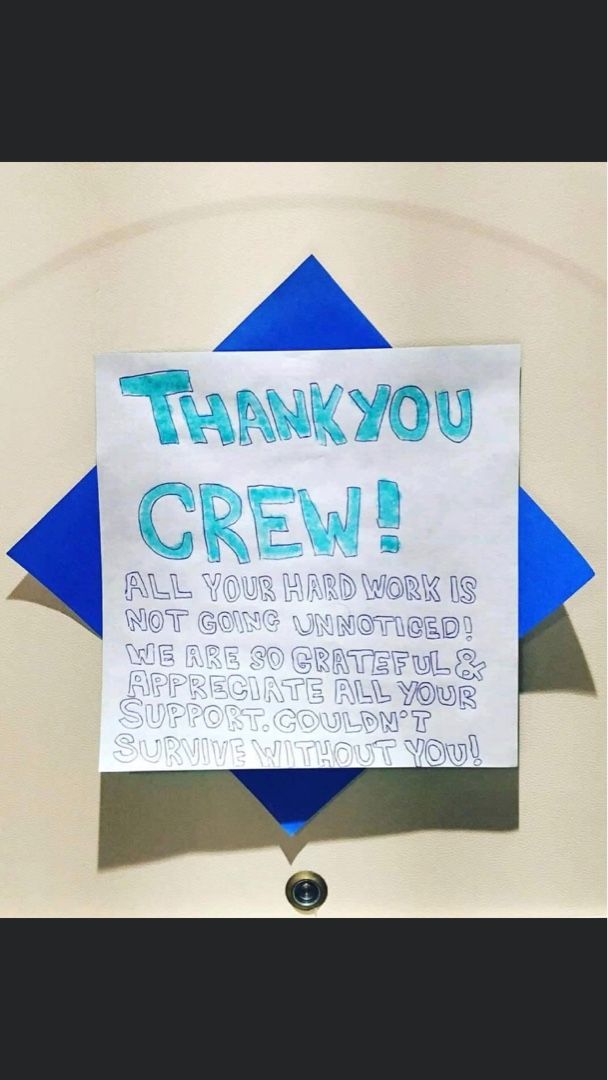 THANKYOU
CREW!
ALL YOUR HARD WORK IS
NOT GOING UNNOTICED!
WE ARE SO GRATEFUL &
APPRECIATE ALL YOUR
SUPPORT. COULDN'T
SURVIVE WITHOUT YOU!